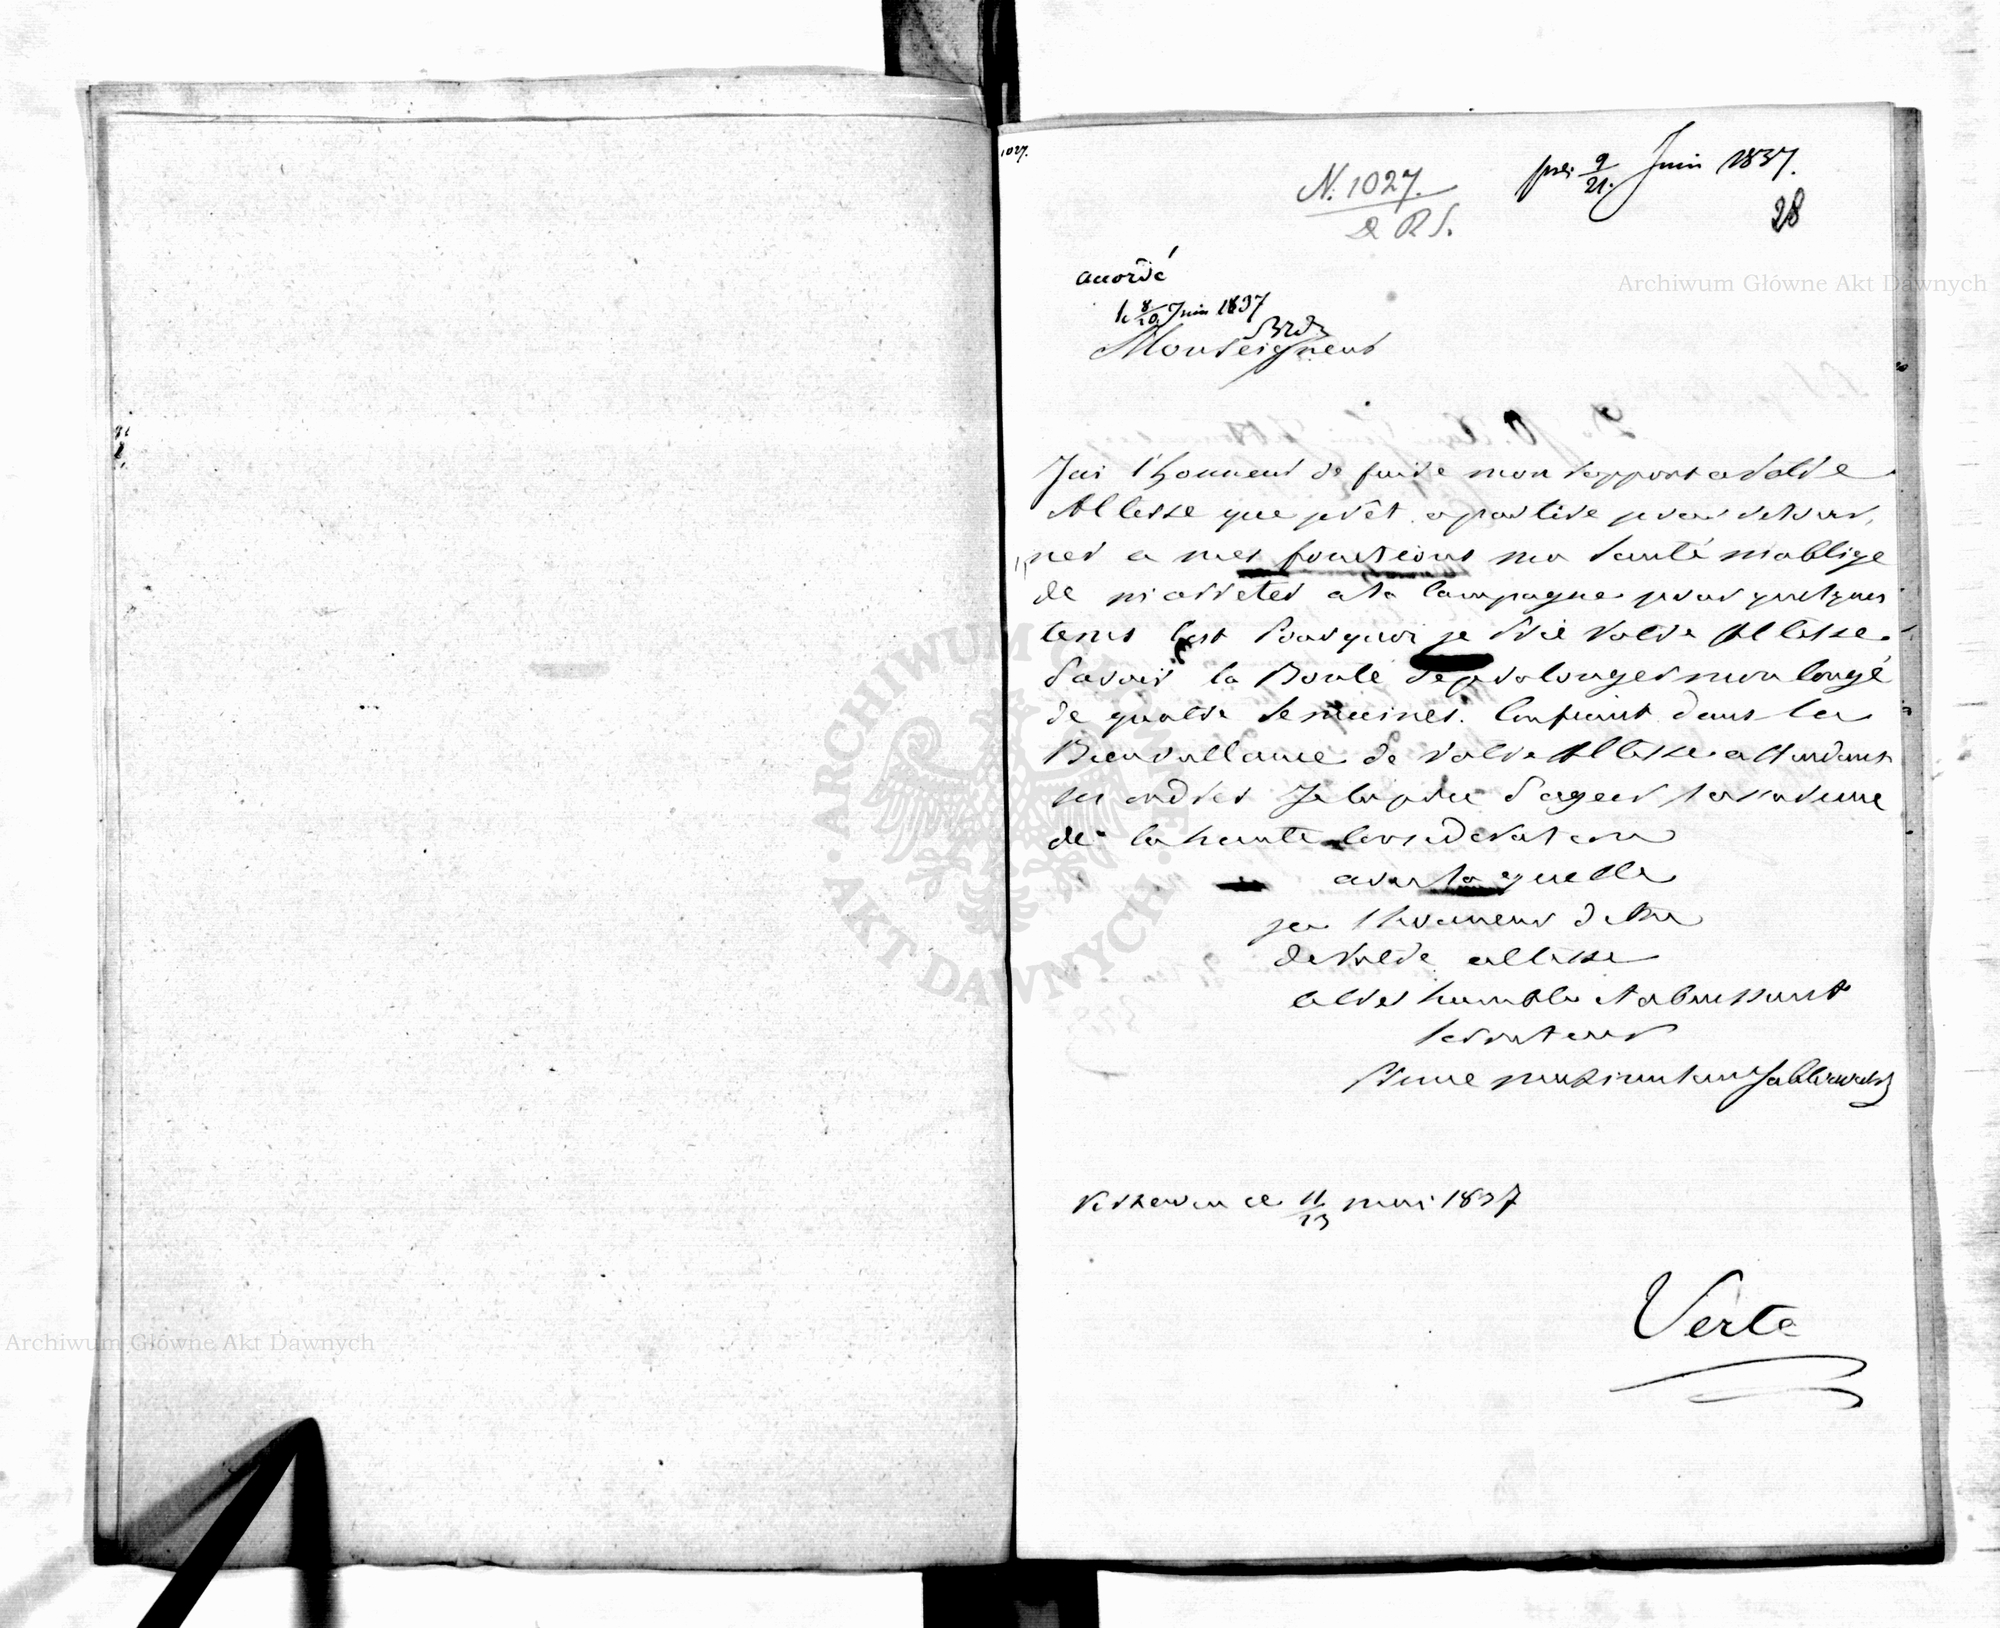 1027.
N. 1027.
D R S.
pré: 9/21. Juin 1837.
28
accordé
le 8/20 Juin 1837
Monseigneur
Jai l'honneur de faire mon rapport a Votre
Altesse que prêt a partire pour retour,
ner a mes fonctions ma Santé mablige
de m'arreter a la Campagne pour quelques
tems C'est Pourquoi je Prie Votre Altesse
d'avoir la Bonté de prolonger mon Congé
de quatre Semaines. Confiant dans la
Bienvallance de Votre Altesse attendant
ses ordres Je la prie d'ageer l'assurence
de la haute Consideration
avec la quelle
jai l'honneur d'etre
de Votre altesse
le tres humble et abeissant
serviteur
Prince Jablonowski
ce 11/23 mai 1837
Verte
ARCHIWUM GŁÓWNE · AKT DAWNYCH ·
Archiwum Główne Akt Dawnych
Archiwum Główne Akt Dawnych